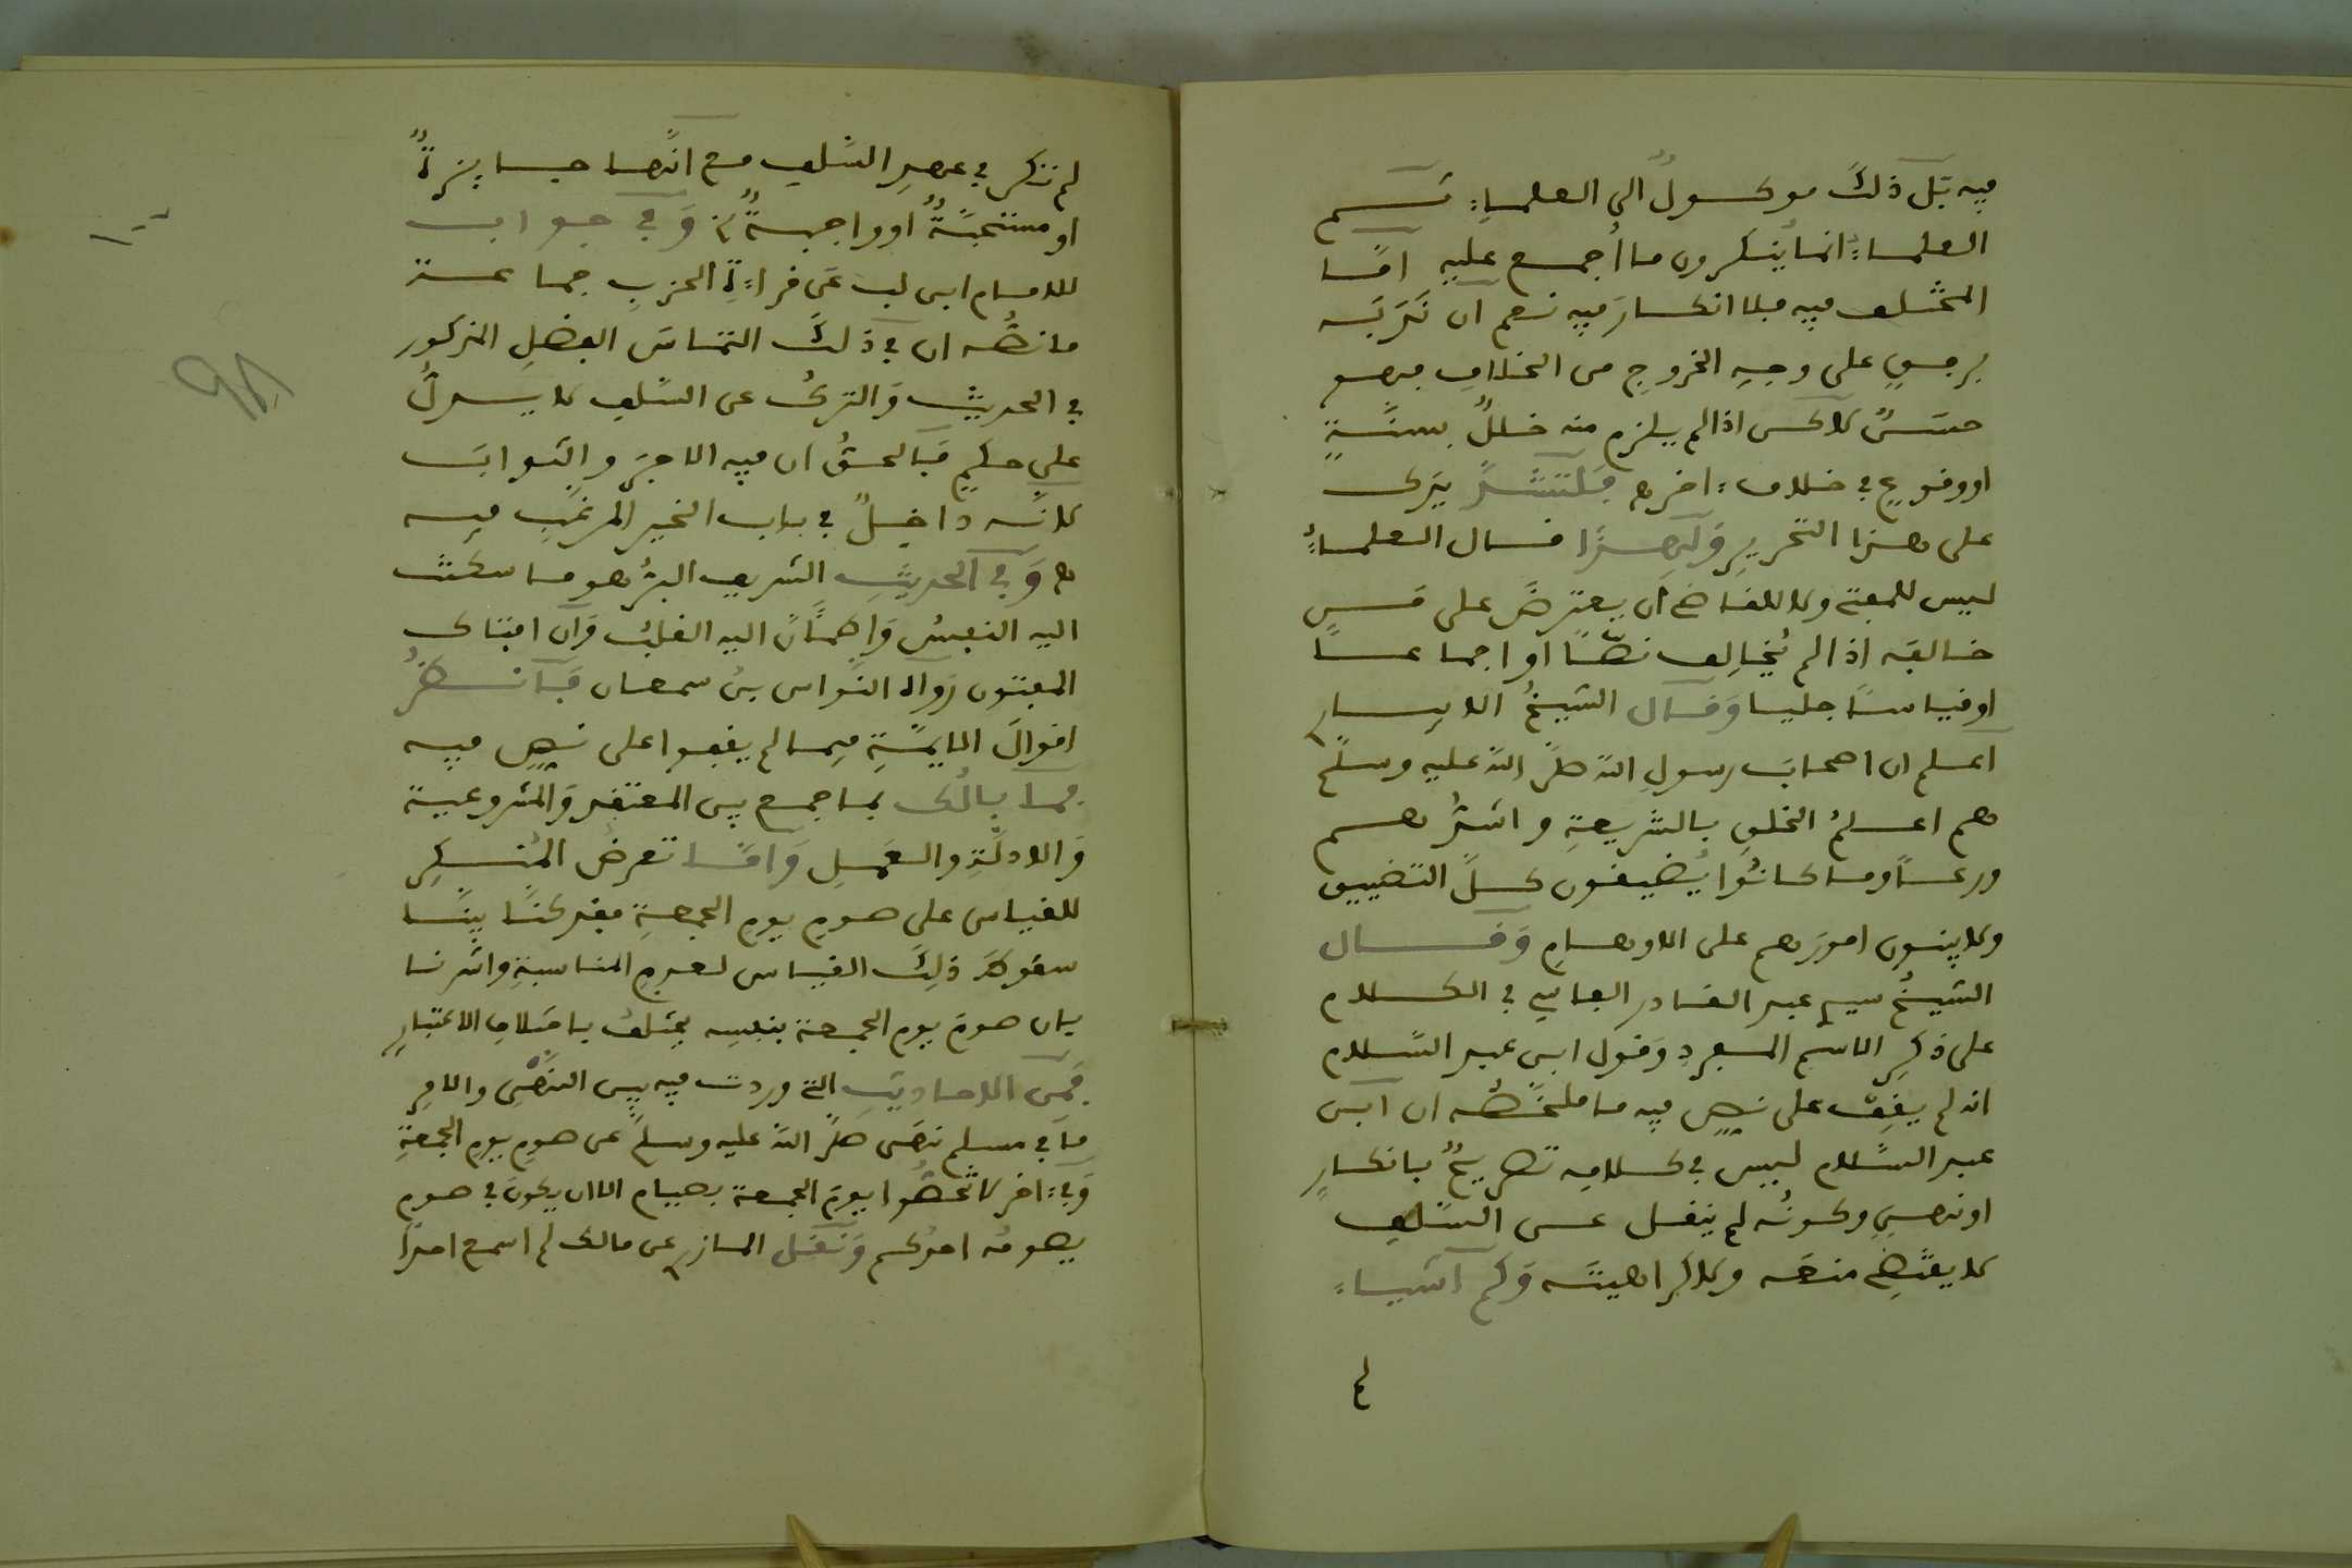 فيه بل ذلك موكولٌ الى العلماءِ ثم
العلماءُ انما ينكرون ما أجمع عليه امّا
المختلف فيه فلا انكارَ فيه نعم ان ندبَه
برفقٍ على وجهِ الخروجِ من الخلافِ فهو
حسَنٌ لاكن اذا لم يلزم منه خللٌ بسنّةٍ
او وقوعٍ في خلافٍ ءاخر ﻫ فلتشدَّ يدَك
على هذا التحريرِ وَلِهذا قال العلماءُ
ليس للمفتي ولا للقاضي أن يعترضَ على من
خالفه اذا لم يُخالِف نصًّا او اجماعًا
او قياسًا جليا وَقال الشيخُ الابيار
اعلم ان اصحابَ رسولِ الله صلَّى الله عليه وسلَّم
هم اعلمُ الخلقِ بالشريعةِ واشدُّهم
ورعًا وما كانُوا يُضيقون كلَّ التضييق
ولا يبنون امورَهم على الاوهامِ وَقال
الشيخُ سيد عبد القادر الفاسي في الكلام
على ذكرِ الاسمِ المفردِ وَقول ابن عبد السَّلام
انه لم يقِف على نصٍّ فيه ما ملخَّصُه ان ابن
عبد السَّلام ليس في كلامِه تصريحٌ بانكارٍ
او نهيٍ وكونُه لم ينقل عن السَّلفِ
لا يقتضِي منعَه ولا كراهيتَه وَكم اشياءَ
لم
لم تذكر في عصرِ السَّلفِ مع انّها جايزةٌ
او مستحبَّةٌ او واجبةٌ وَفي جواب
للامام ابن لب عَن قراءةِ الحزبِ جماعة
ما نصُّه ان في ذلكَ التماسَ الفضلِ المذكور
في الحديث وَالتركُ عن السَّلفِ لا يدلُّ
على حكمٍ فالحقُّ ان فيه الاجرَ والثوابَ
لانّه داخلٌ في باب الخير المرغَّبِ فيه
ﻫ وَفي الحديثِ الشريف البرُّ هو ما سكنت
اليه النفسُ وَاطمأنَّ اليه القلبُ وَان افتاك
المفتون رَواه النَّواس بنُ سمعان فانظُر
اقوالَ الايمَّةِ فِيما لم يقفوا على نصٍّ فيه
فما بالُك بما جمع بين المعتقدِ وَالمشروعية
وَالادلّةِ والعَملِ وَامّا تعرضُ المُنكِرِ
للقياس على صومِ يومِ الجمعةِ فقد كنّا بيَّنّا
سقوطَ ذلِكَ القياس لعدمِ المناسبةِ واشرنا
بان صومَ يومِ الجمعة بنفسِه يختلفُ باختلافِ الاعتبارِ
فَمِن الاحاديثِ التي وردت فيه بين النَّهْيِ والامرِ
ما في مسلم نهَى صلَّى الله عليه وسلّم عن صومِ يومِ الجمعةِ
وَفي ءاخر لا تخصُّوا يومَ الجمعة بصيام الا ان يكونَ في صوم
يصومُه احدُكم وَنقل المازر عن مالك لم اسمع احدًا